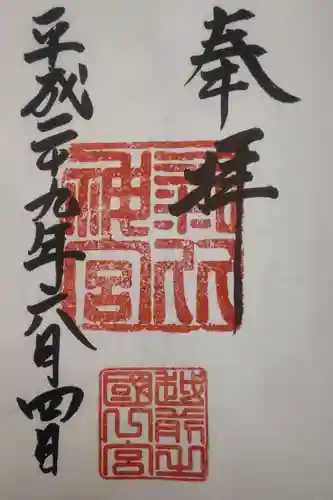 奉拝
氣比
神宮
越前之
國一宮
平成二十九年六月四日